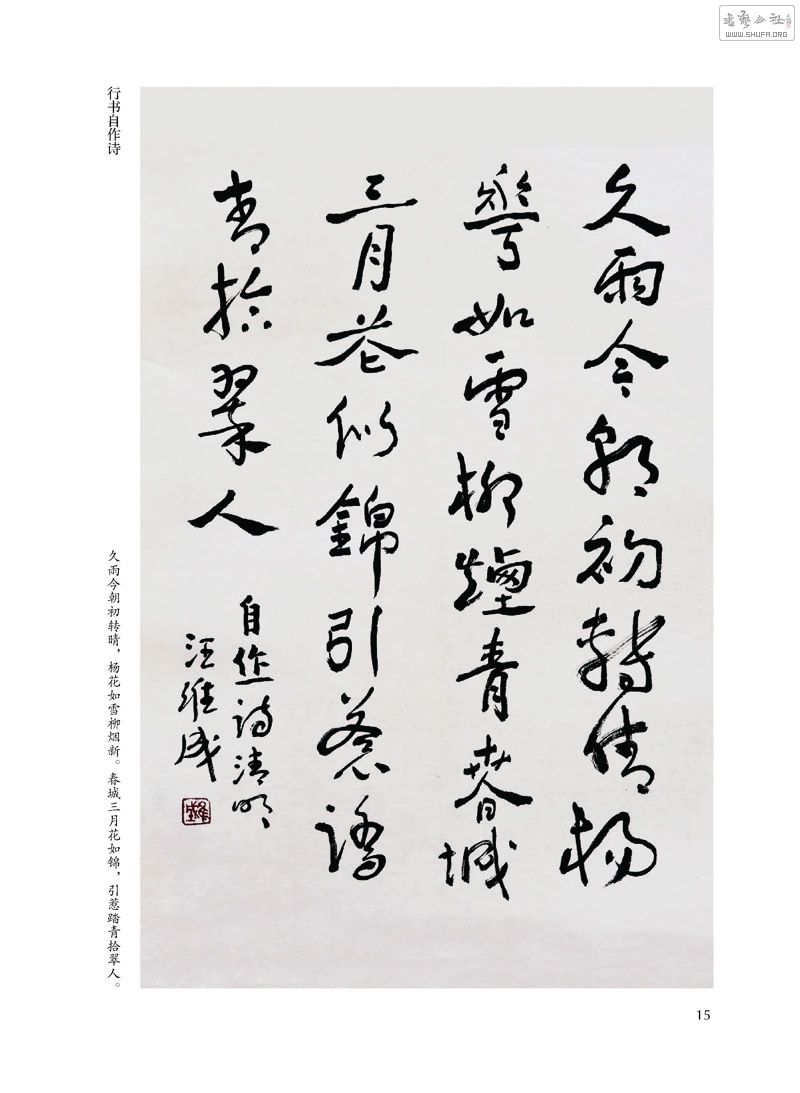 書藝公社
WWW.SHUFA.ORG
行书自作诗
久雨今朝初轉晴楊
華如雪柳煙青春城
三月花似錦引惹踏
青拾翠人
自作詩清明
汪維成
久雨今朝初转晴，杨花如雪柳烟新。春城三月花如锦，引惹踏青拾翠人。
15